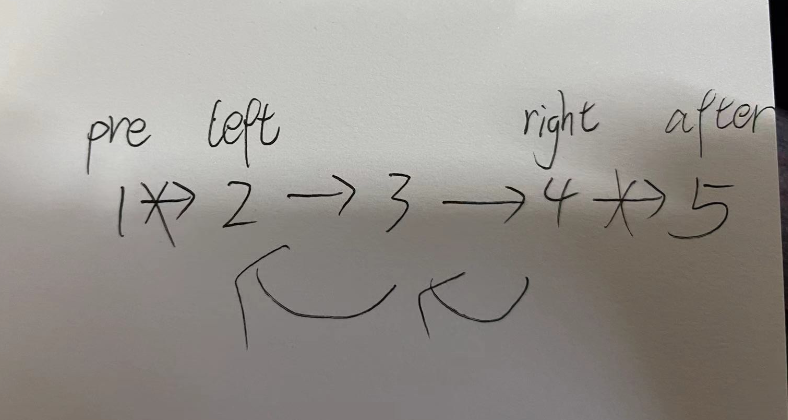 pre left right after
1 → 2 → 3 → 4 → 5